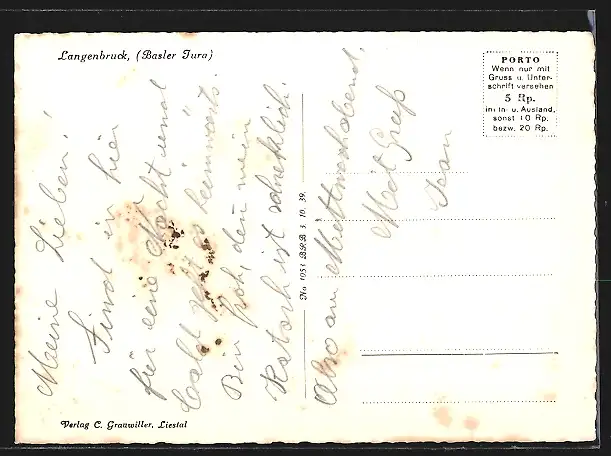 Langenbruck, (Basler Jura)
PORTO
Wenn nur mit
Gruss u. Unter-
schrift versehen
5 Rp.
im In- u. Ausland,
sonst 10 Rp.
bezw. 20 Rp.
Meine Lieben!
Sind in hier
für eine Nacht und
bald geht es heimwärts.
Bin froh, denn mein
Katarh ist schrecklich
Also am Mittwochabend.
Mit Gruß
Jean
No 1053 BRB 3. 10. 39.
Verlag C. Grauwiller, Liestal